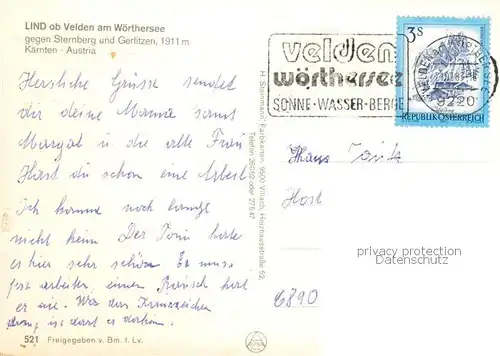 LIND ob Velden am Wörthersee
gegen Sternberg und Gerlitzen, 1911 m
Kärnten · Austria
Herzliche Grüsse sendet
dir deine Mama samt
Margot u die alte Frau
Hast du schon eine Arbeit
Ich komme noch lange
nicht heim Der Toni hatte
es hier sehr schön Er muss
fest arbeiten, einen Rausch hat
er nie. Was das Kreuzzeichen
ist dort es
521 Freigegeben v. Bm. f. Lv.
H. Steinmann Farbkarten, 9500 Villach,
Telefon
velden
wörthersee
SONNE·WASSER·BERGE
3s
9220
REPUBLIK ÖSTERREICH
Hans
Host
6890
privacy protection
watermark